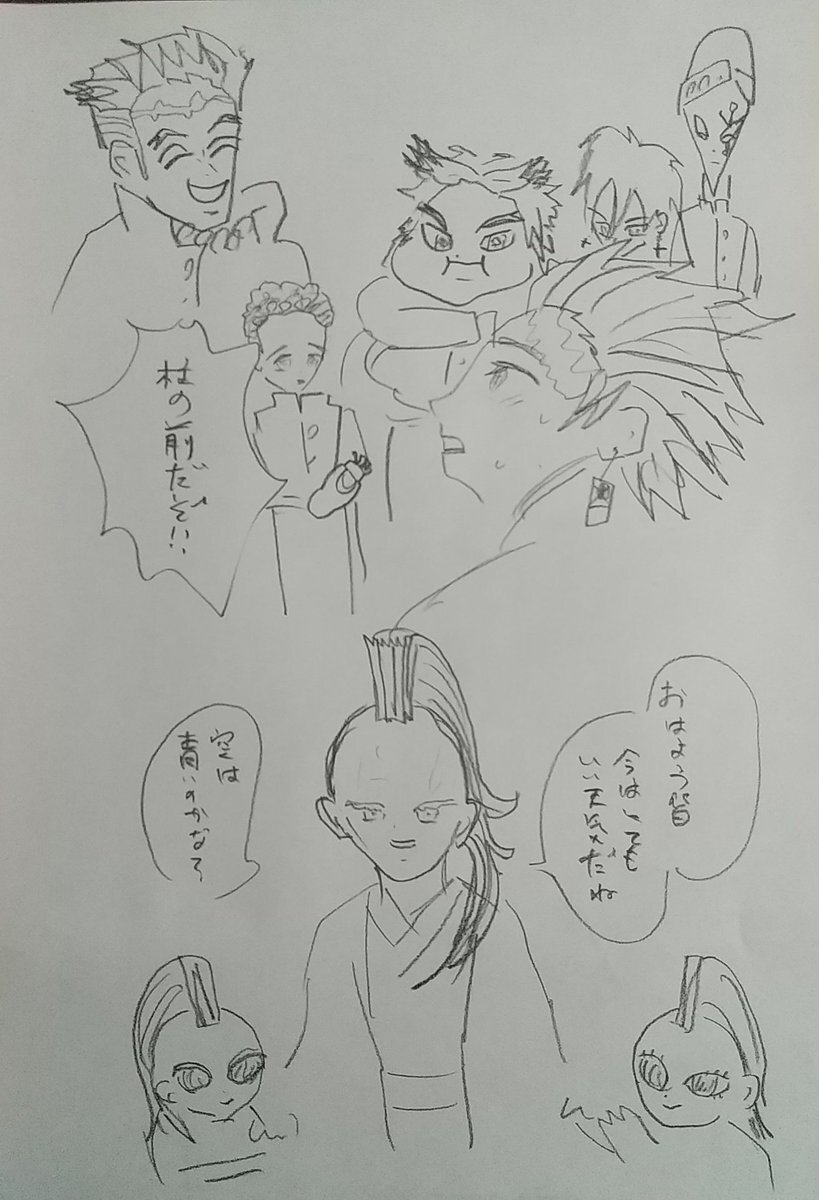 柱の前だぞ!!
おはよう皆
今はとても
いい天気だね
空は
青いのかな?